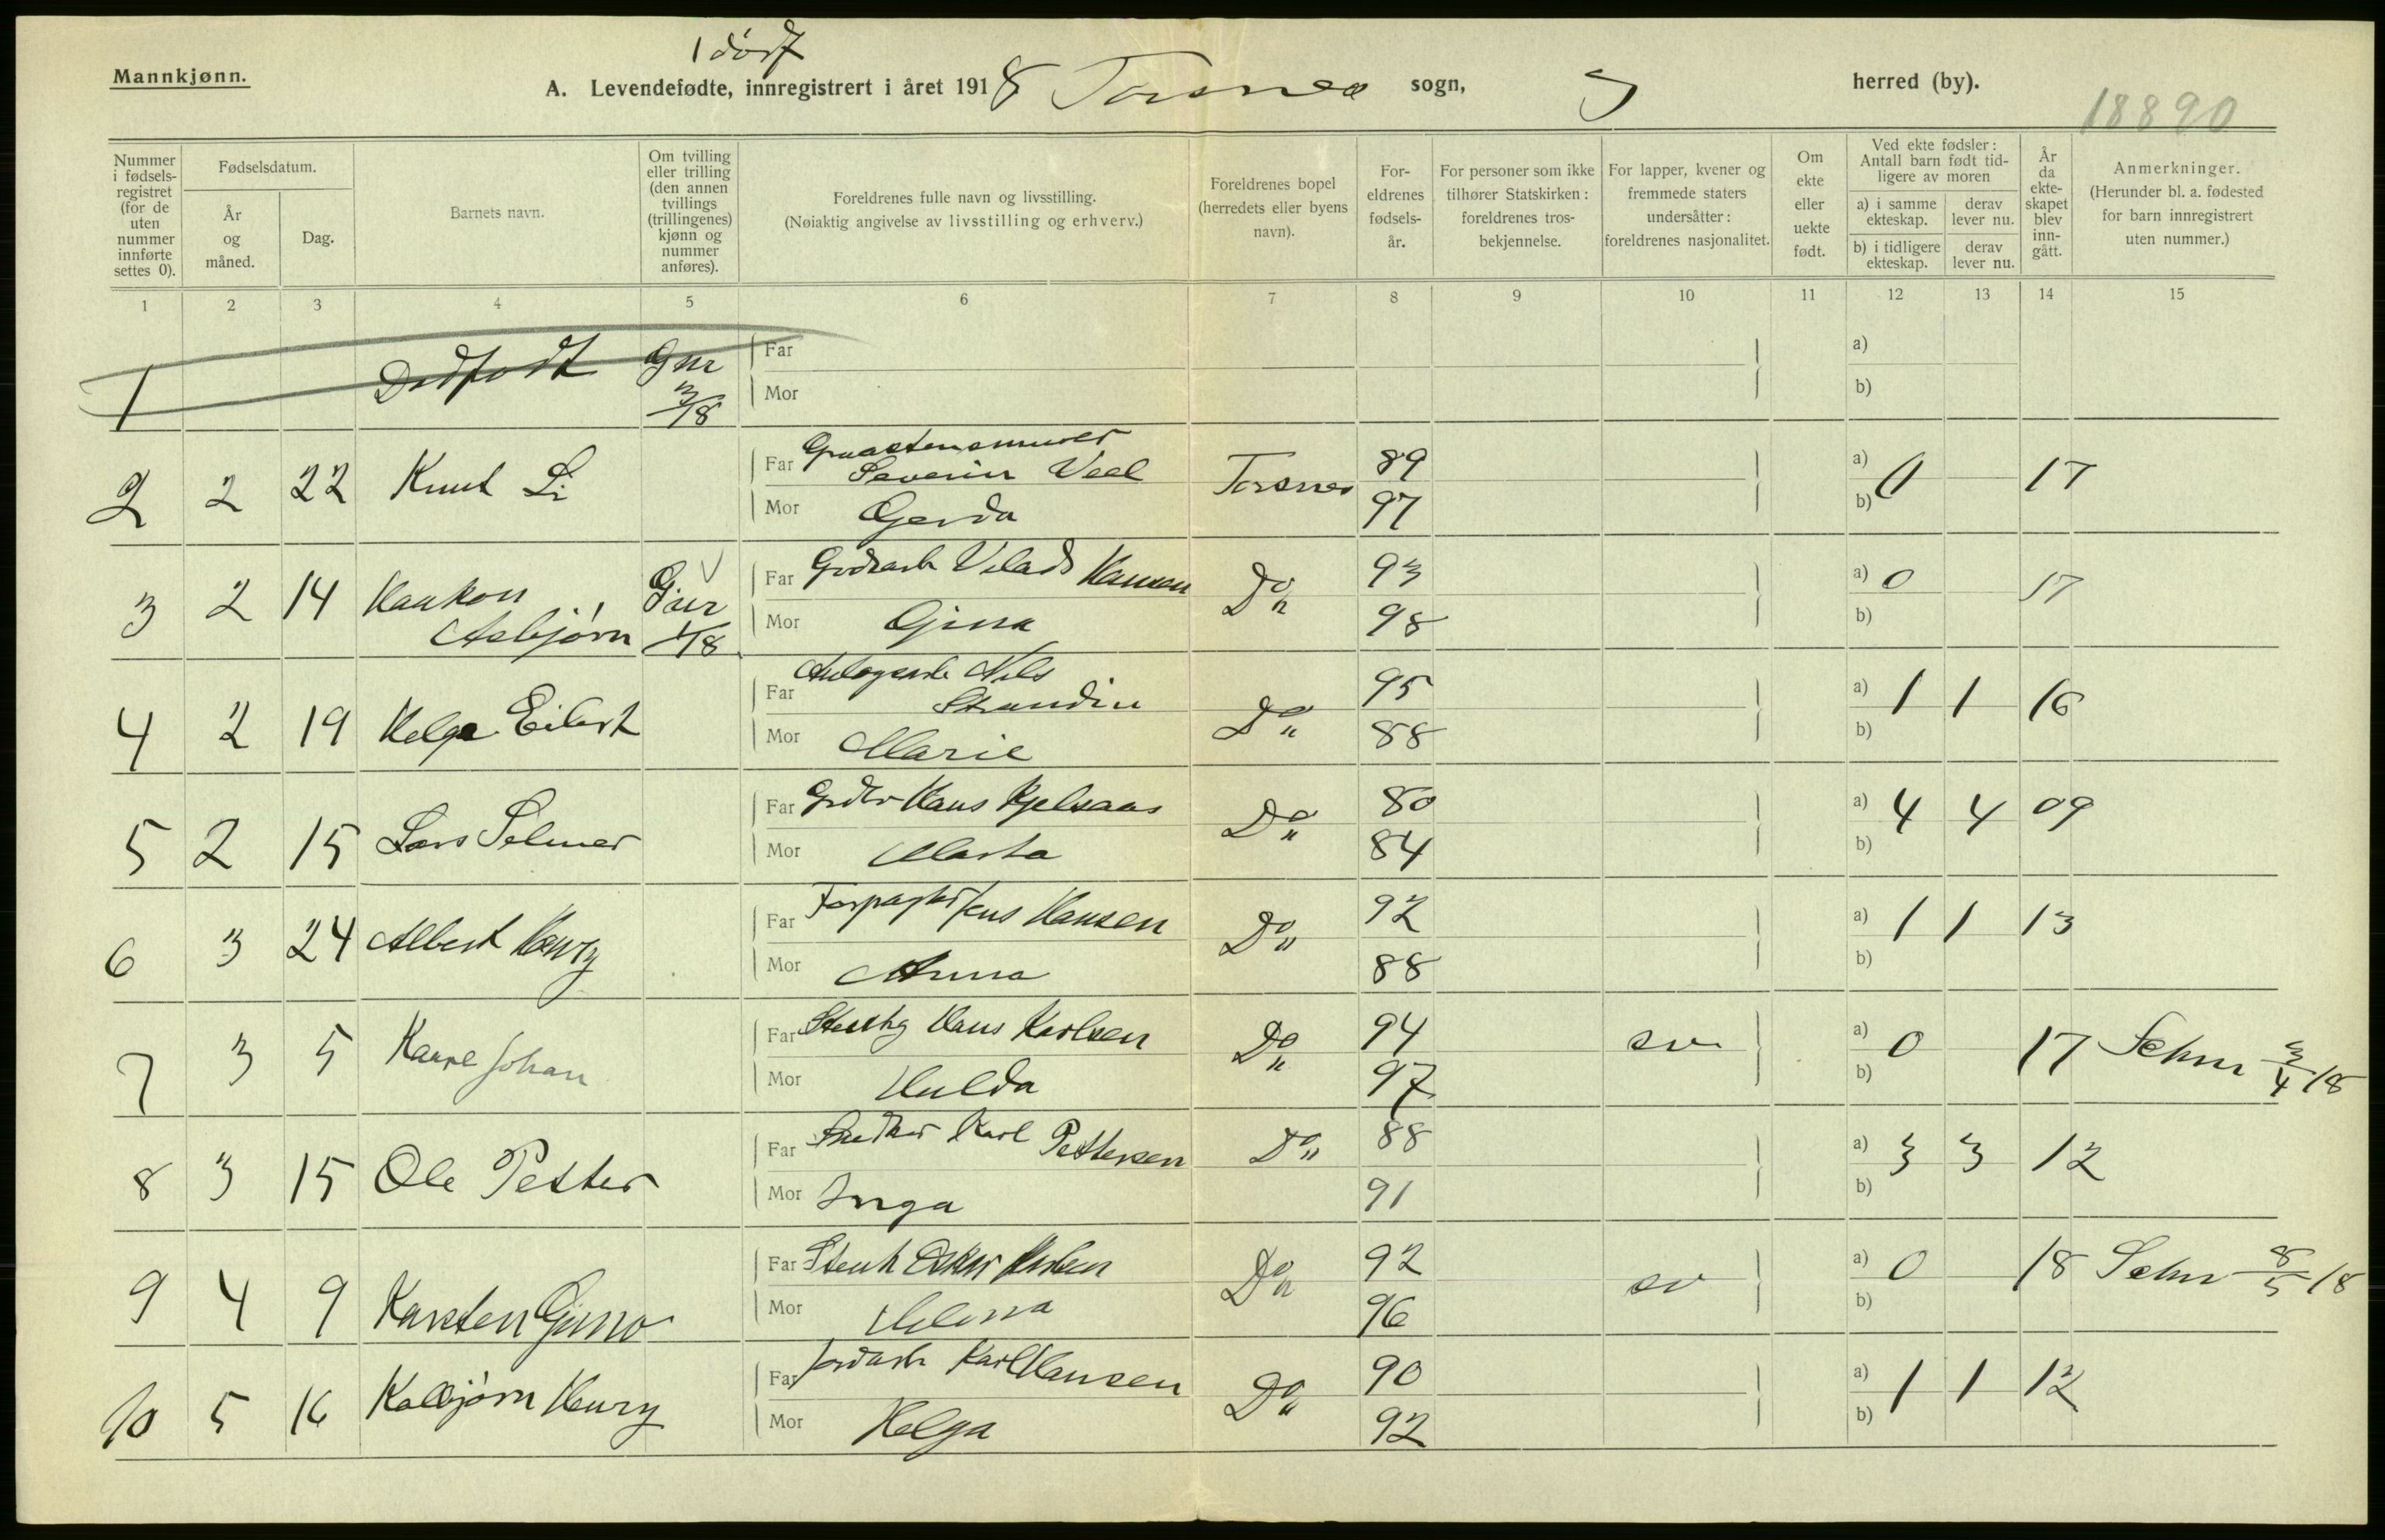 1 dødf
Mannkjønn.
A. Levendefødte, innregistrert i året 1918 Torsnes sogn, herred (by).
18890
Nummer i fødselsregistret (for de uten nummer innførte settes 0).
Fødselsdatum.
År og måned.
Dag.
Barnets navn.
Om tvilling eller trilling (den annen tvillings (trillingenes) kjønn og nummer anføres).
Foreldrenes fulle navn og livsstilling.
(Nøiaktig angivelse av livsstilling og erhverv.)
Foreldrenes bopel (herredets eller byens navn).
Foreldrenes fødselsår.
For personer som ikke tilhører Statskirken: foreldrenes trosbekjennelse.
For lapper, kvener og fremmede staters undersåtter: foreldrenes nasjonalitet.
Om ekte eller uekte født.
Ved ekte fødsler: Antall barn født tidligere av moren
a) i samme ekteskap. derav lever nu.
b) i tidligere ekteskap. derav lever nu.
År da ekteskapet blev inngått.
Anmerkninger.
(Herunder bl. a. fødested for barn innregistrert uten nummer.)
1 2 3 4 5 6 7 8 9 10 11 12 13 14 15
1 Dødfødt 3/8 Far a)
Mor b)
2 2 22 Knut Li Far Severin Veel Torsnes 89 a) 0 17
Mor Gerda 97 b)
3 2 14 Haakon Asbjørn Far Hansen Do 93 a) 0 17
Mor Gina 98 b)
4 2 19 Helge Eilert Far Nils Strandin Do " 95 a) 1 1 16
Mor Marie 88 b)
5 2 15 Lars Selmer Far Hans Kjelsaas Do " 80 a) 4 4 09
Mor Marta 84 b)
6 3 24 Albert Henry Far Forpagter Jens Hansen Do " 92 a) 1 1 13
Mor Anna 88 b)
7 3 5 Kaare Johan Far Stenhg Hans Karlsen Do " 94 sv a) 0 17 Schm 3/4 18
Mor Hulda 97 b)
8 3 15 Ole Petter Far Snedker Karl Pettersen Do " 88 a) 3 3 12
Mor Inga 91 b)
9 4 9 Karsten Gunno Far Stenh Oskar Do " 92 sv a) 0 18 Schm 8/5 18
Mor Helena 96 b)
10 5 16 Kolbjørn Henry Far Jordarb Karl Hansen Do " 90 a) 1 1 12
Mor Helga 92 b)